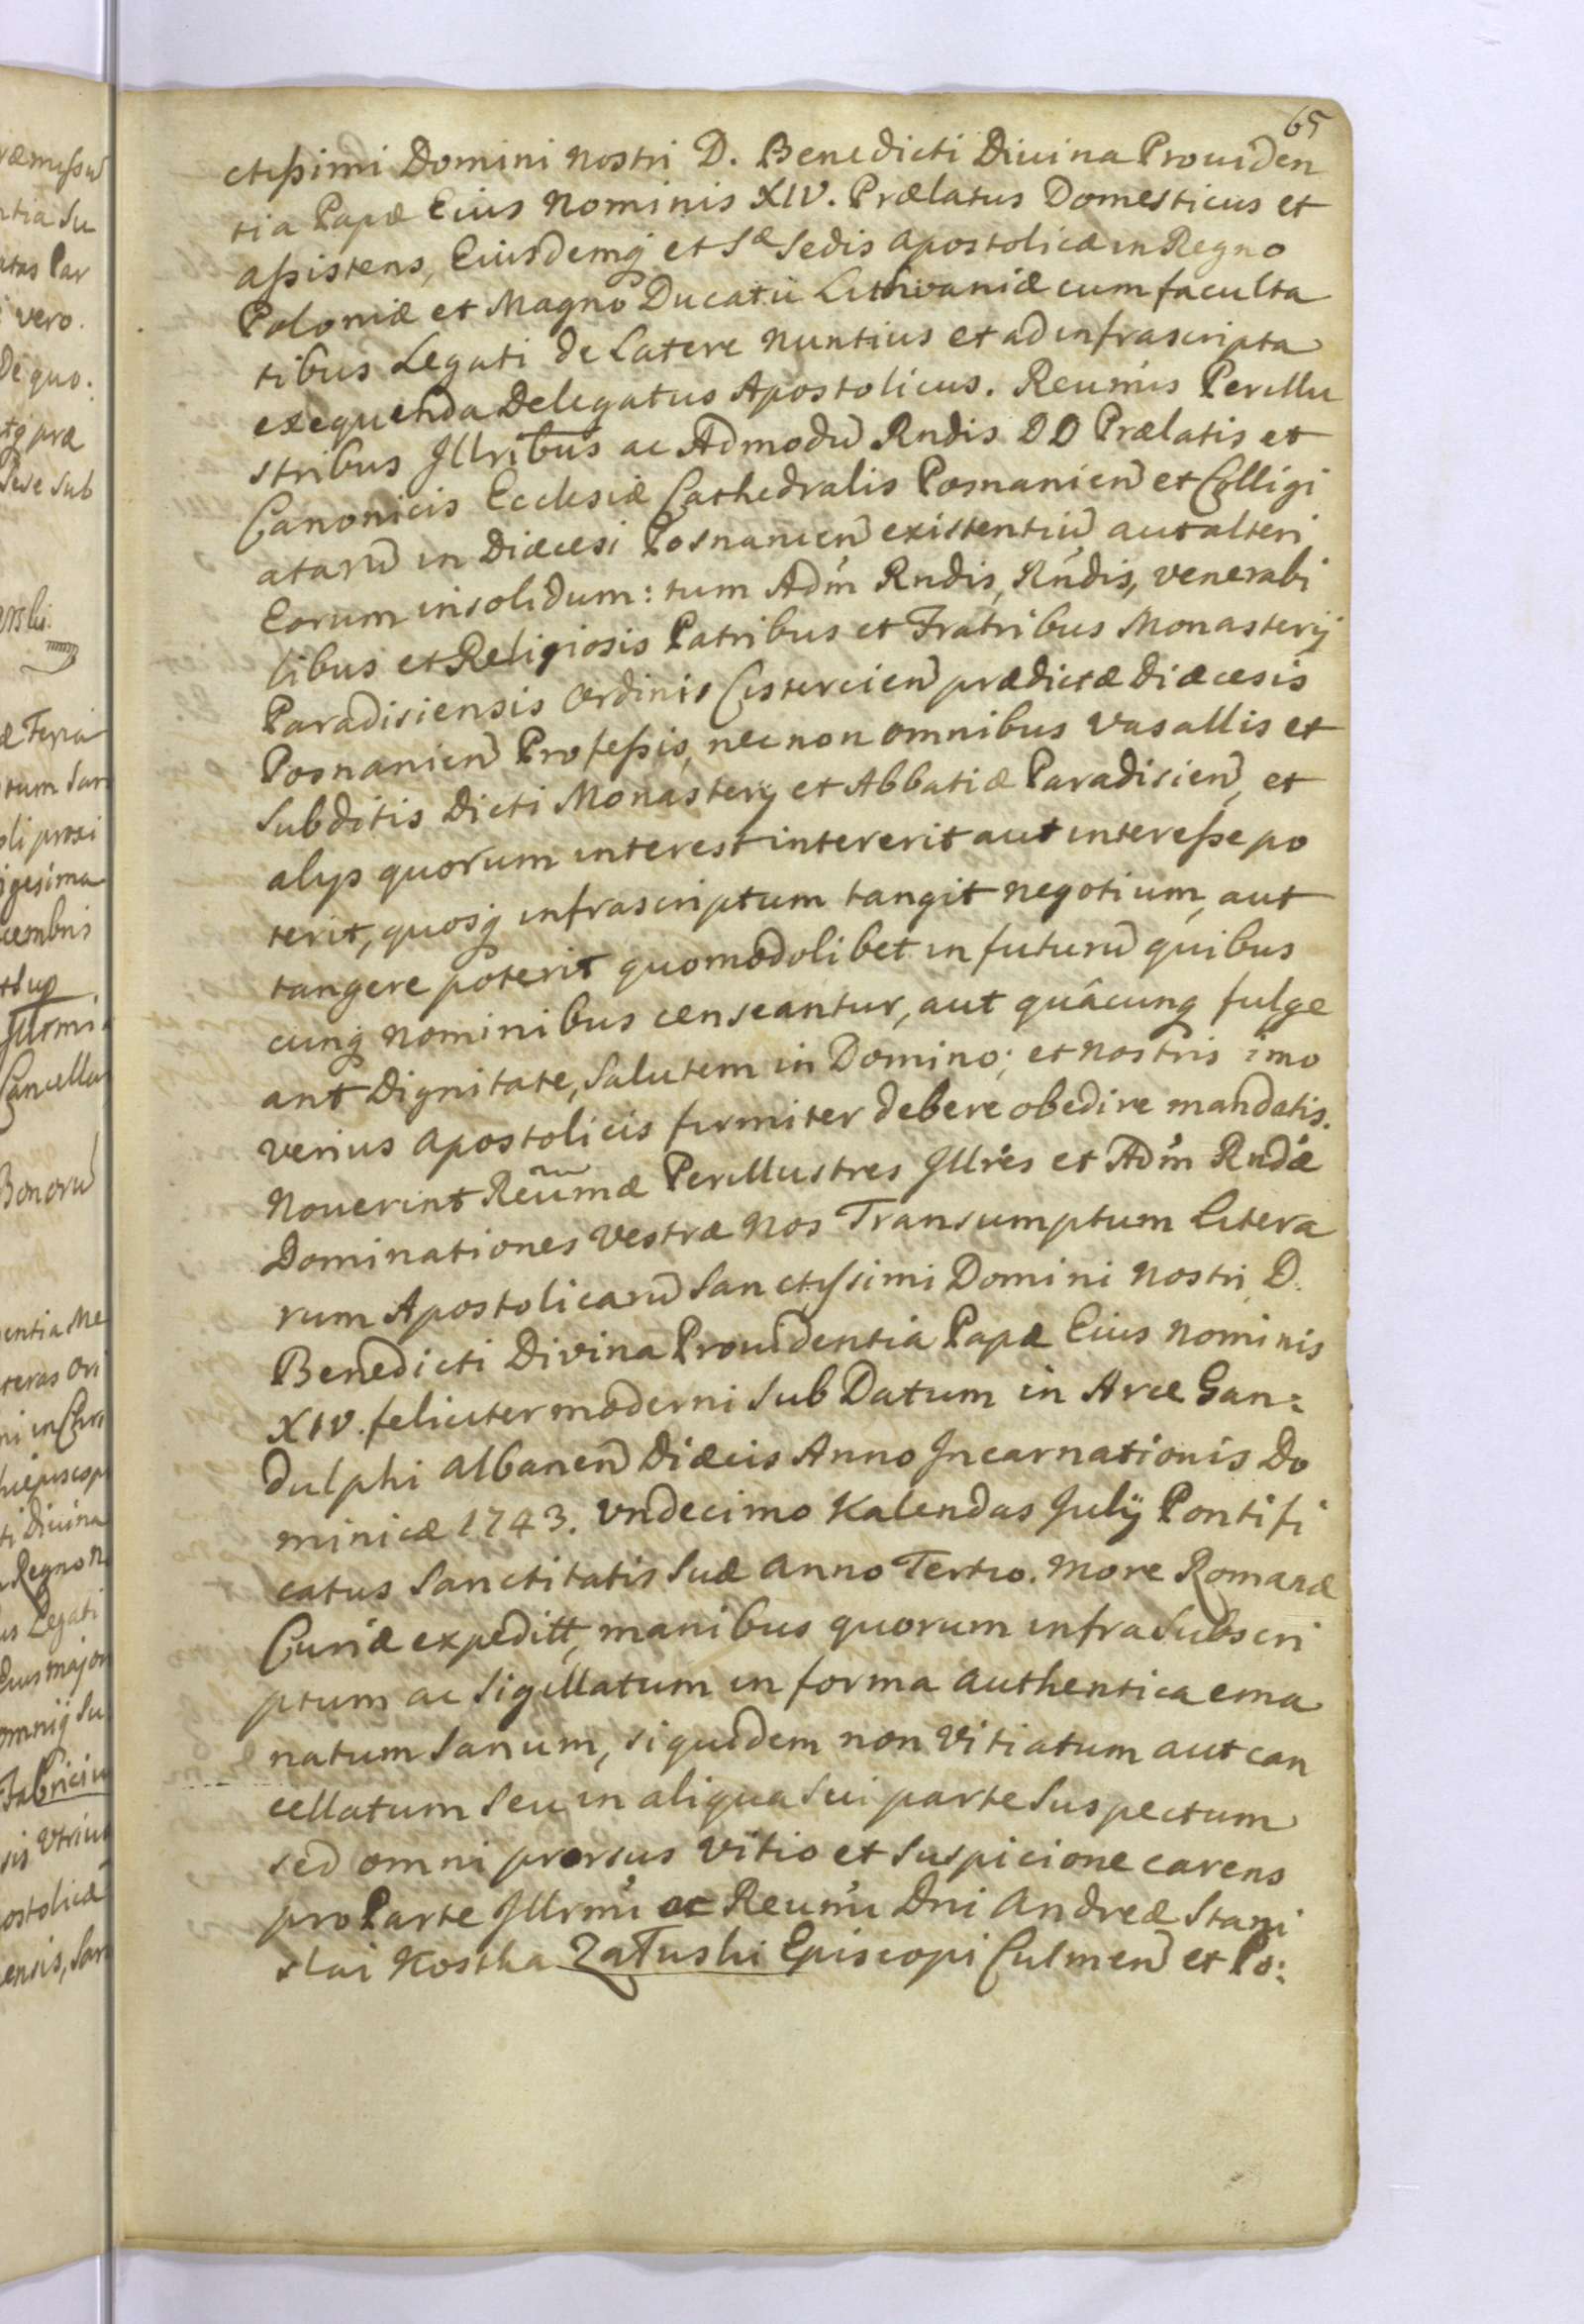 65
ctissimi Domini Nostri D. Benedicti Divina Providen
tia Papæ Eius Nominis XIV. Prælatus Domesticus et
assistens, Eiusdemq et Sæ Sedis Apostolicæ in Regno
Poloniæ et Magno Ducatu Lithvaniæ cum faculta
tibus Legati de Latere Nuntius et ad infrascripta
exequenda Delegatus Apostolicus. Reumis Perillu
stribus Jllribus ac Admodũ Rndis DD Prælatis et
Canonicis Ecclesiæ Cathedralis Posnanien̄ et Collegi
atarũ in Diæcesi Posnanien̄ existentiũ aut alteri
Eorum insolidum: tum Adm Rndis, Rndis, Venerabi
libus et Religiosis Patribus et Fratribus Monasterij
Paradisiensis Ordinis Cistercien̄ prædictæ Diæcesis
Posnanien̄ Professis, necnon omnibus Vasallis et
Subditis Dicti Monasterij et Abbatiæ Paradisien̄, et
alijs quorum interest intererit aut interesse po
terit, quosq infrascriptum tangit negotium, aut
tangere poterit quomodolibet in futurũ quibus
cunq nominibus censeantur, aut quâcunq fulge
ant Dignitate, Salutem in Domino; et nostris imo
verius Apostolicis firmiter debere obedire mandatis.
Noverint Reũmæ Perillustres Jllres et Adm Rndæ
Dominationes Vestræ Nos Transumptum Litera
rum Apostolicarũ Sanctissimi Domini Nostri D.
Benedicti Divina Providentia Papæ Eius Nominis
XIV. feliciter moderni Sub Datum in Arce Gan:
dulphi Albanen̄ Diæcis Anno Jncarnationis Do
minicæ 1743. Undecimo Kalendas Julij Pontifi
catus Sanctitatis Suæ Anno Tertio. More Romanæ
Curiæ expeditt, manibus quorum infra Subscri
ptum ac Sigillatum in forma authentica ema
natum Sanum, siquidem non Vitiatum aut can
cellatum Seu in aliqua Sui parte Suspectum
sed omni prorsus Vitio et Suspicione carens
pro Parte Jllrmi ac Reumi Dni Andreæ Stani
slai Kostka Załuski Episcopi Culmen̄ et Po: